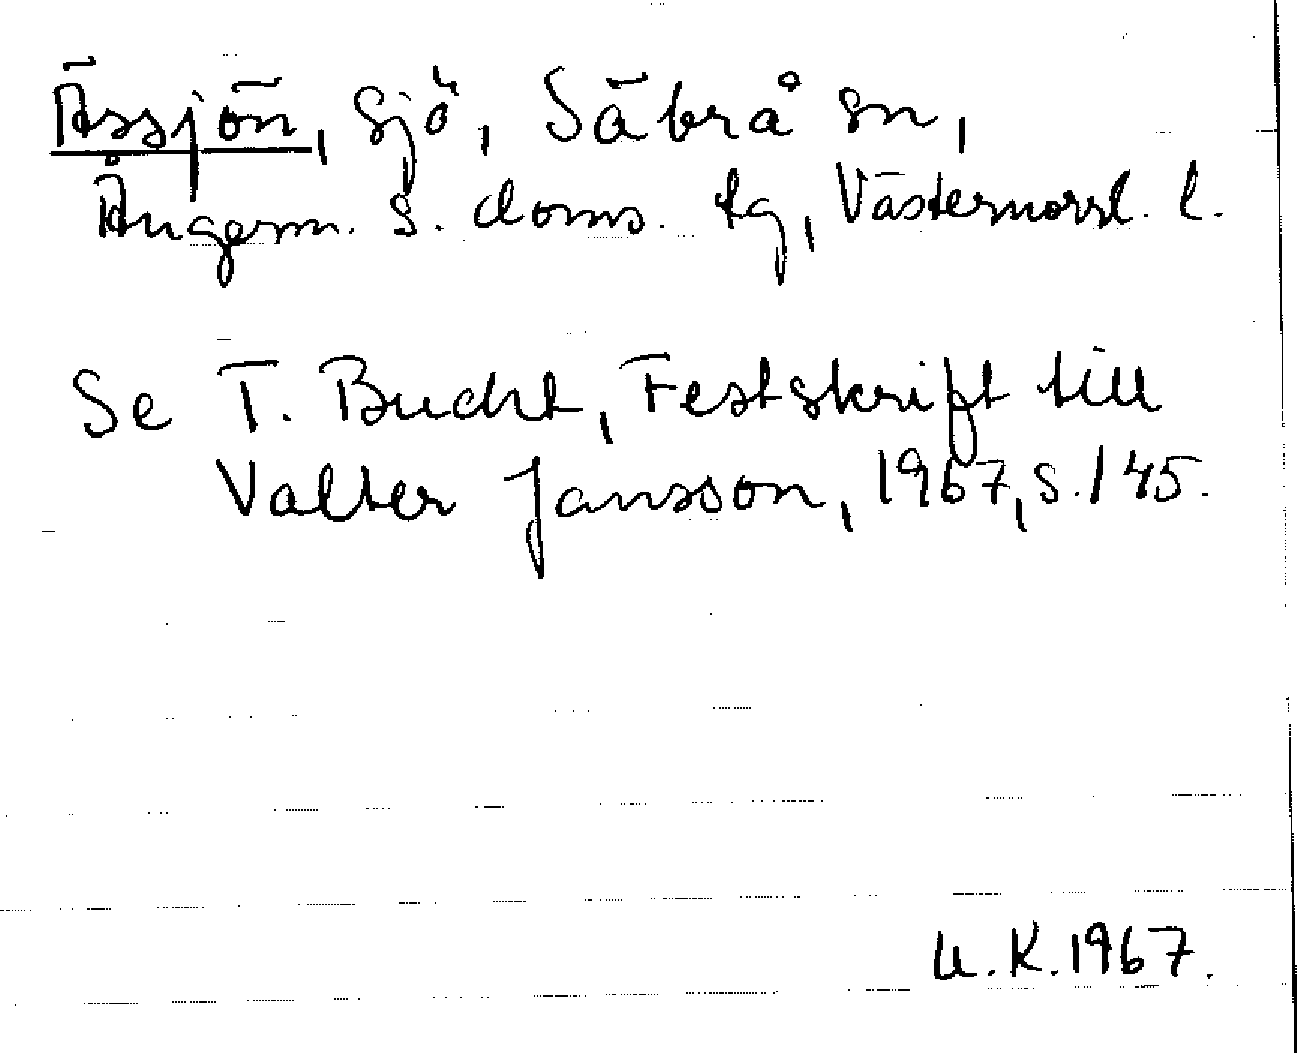 Ässjön, sjö, Säbrå sn,
Ångerm. s. doms. tg, Västernorrl. l.
Se T. Bucht, Festskrift till
Valter Jansson, 1967, s. 145.
U.K. 1967.